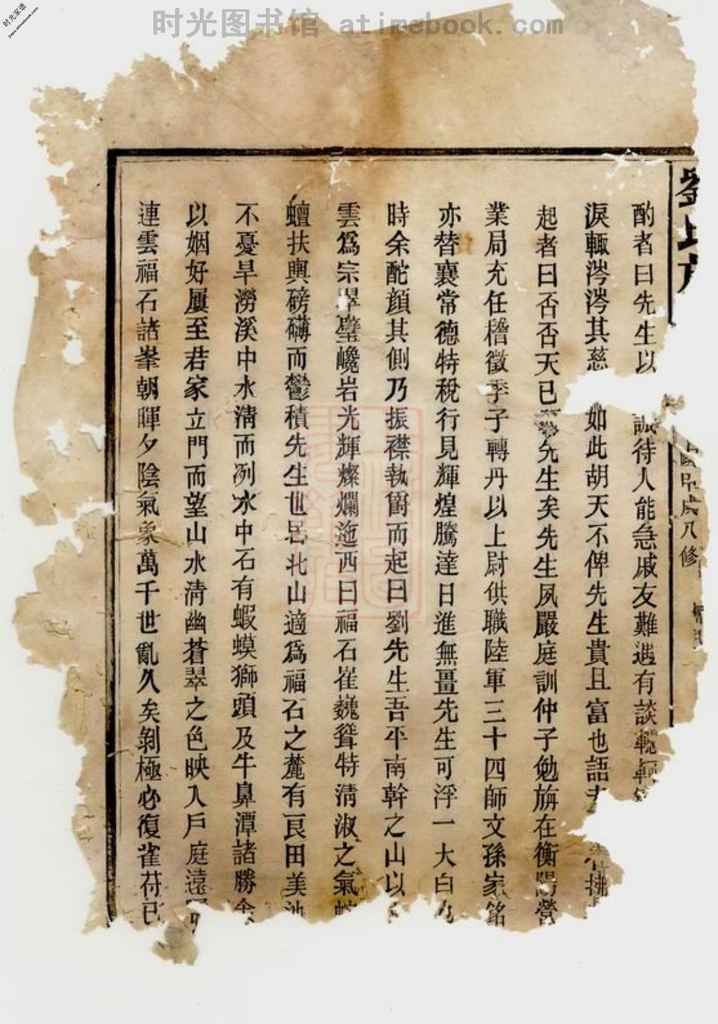 时光图书馆 atimebook.com
时光家谱
www.atimebook.com
劉氏
甲戌八修
酌者曰先生以 誠待人能急戚友難遇有談
淚輒滂滂其慈 如此胡天不俾先生貴且富也語
起者曰否否天已 先生矣先生夙嚴庭訓仲子勉旃在衡陽營
業局充任稽徵季子轉丹以上尉供職陸軍三十四師文孫家銘
亦替襄常德特稅行見輝煌騰達日進無畺先生可浮一大白
時余酡顔其側乃振襟執爵而起曰劉先生吾平南幹之山以
雲爲宗翠壁巉岩光輝燦爛迤西曰福石崔巍聳特清淑之氣
蟺扶輿磅礴而鬱積先生世居北山適爲福石之麓有良田美池
不憂旱澇溪中水清而冽水中石有蝦蟆獅頭及牛鼻潭諸勝余
以姻好屢至君家立門而望山水清幽蒼翠之色映入戶庭遠
連雲福石諸峯朝暉夕陰氣象萬千世亂久矣剝極必復萑苻已